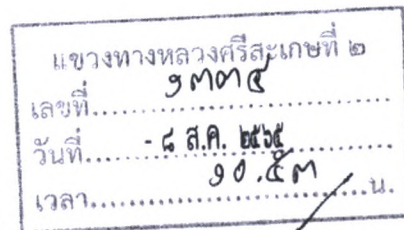 แขวงทางหลวงศรีสะเกษที่ ๒
เลขที่ ๑๓๓๔
วันที่ - ๘ ส.ค. ๒๕๖๕
เวลา ๑๐.๕๓ น.